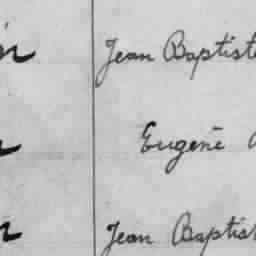 Jean Baptiste
Eugène
Jean Baptis